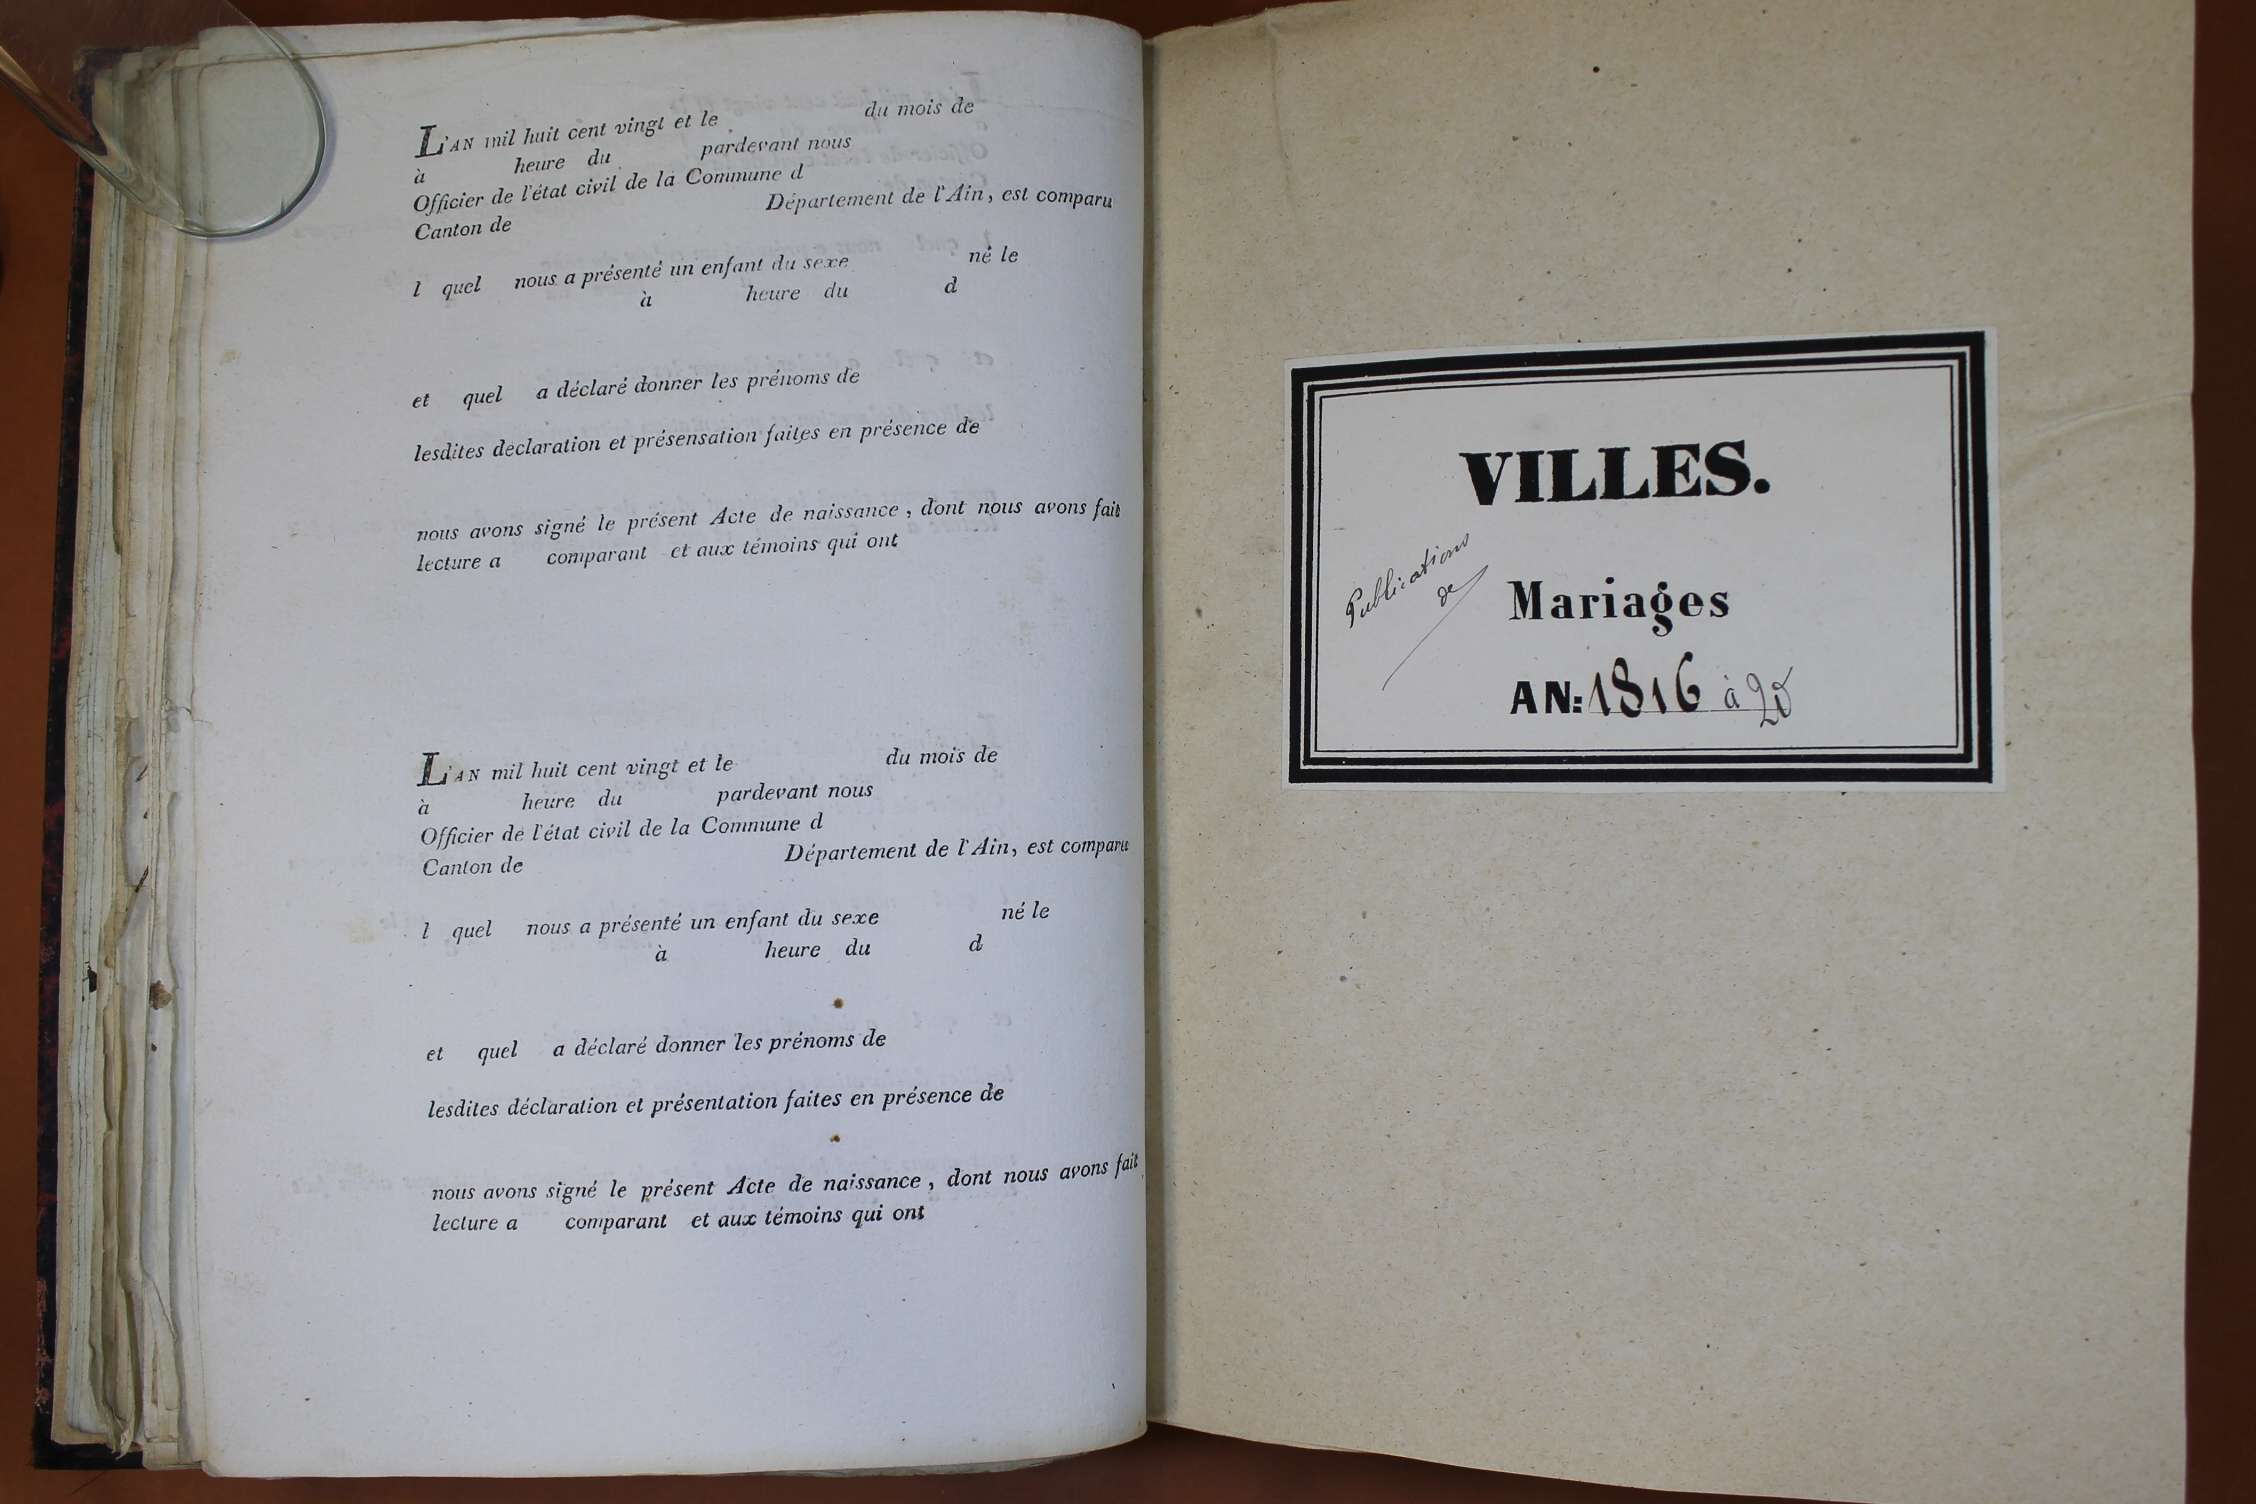 L'AN mil huit cent vingt et le du mois de
à heure du pardevant nous
Officier de l'état civil de la Commune d
Canton de Département de l'Ain, est comparu
l quel nous a présenté un enfant du sexe né le
à heure du d
et quel a déclaré donner les prénoms de
lesdites declaration et présensation faites en présence de
nous avons signé le présent Acte de naissance, dont nous avons fait
lecture a comparant et aux témoins qui ont
L'AN mil huit cent vingt et le du mois de
à heure du pardevant nous
Officier de l'état civil de la Commune d
Canton de Département de l'Ain, est comparu
l quel nous a présenté un enfant du sexe né le
à heure du d
et quel a déclaré donner les prénoms de
lesdites déclaration et présentation faites en présence de
nous avons signé le présent Acte de naissance, dont nous avons fait
lecture a comparant et aux témoins qui ont
VILLES.
Publications
de
Mariages
AN: 1816 à 20